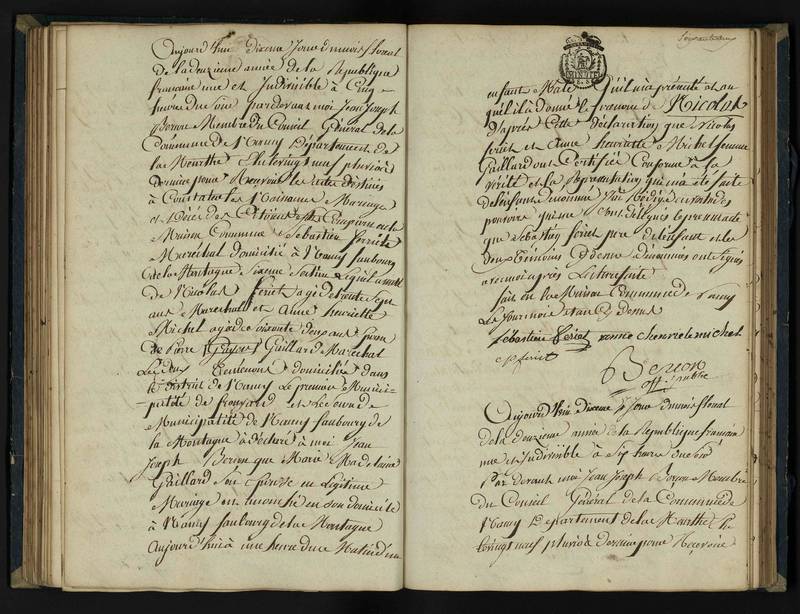 Aujourd'hui dixieme Jour du mois floreal
De la deuxieme année de la Republique
francaine une et Indivisible à Cinq
heure du soir pardevant moi Jean Joseph
Boron Membre du Conseil Général de la
Commune de Nancy Département de
la Meurthe Elu le vingt neuf pluviose
dernier pour Recevoir les actes destinés
à Constater les Naissance Mariage
et Décès des Citoïens est Comparu en la
Maison Commune Sebastien feriet
Marechal domicilié à Nancy faubourg
de la Montagne Sixieme Section Lequel assisté
de Nicolas feriet agé de trente Sept
ans Marechal et Anne henriette
Michel agée de soixante deux ans femme
de Pierre Gaillard Marechal
Les deux temoins domiciliés dans
le district de Nancy Le premier Munici-
palité de frouard et la seconde
Municipalité de Nancy faubourg de
la Montagne à déclaré à moi Jean
Joseph Boron que Marie Madelaine
Gaillard Son Epouse en Legitime
Mariage est accouché en son domicile
à Nancy faubourg de la Montagne
Aujourd'hui à une heure du Matin d'un
enfant Male qu'il m'a présenté et au
quel il à donné le prenom de Nicolas
D'après Cette déclaration que Nicolas
feriet et Anne henriette Michel femme
Gaillard ont Certifiée Conforme à la
Vérité et la Représentation qui m'a été faite
de l'enfant denommé J'ai Rédigé en vertu des
pouvoirs qui me sont délégués le present acte
que Sebastien feriet pere de l'enfant et les
deux Témoins Cidevant dénommés ont Signés
avec moi après Lecture faite
fait en la Maison Commune de Nancy
Le Jour mois et an Ci Devant
Sebastien feriet anne henriete michel
feriet
Boron
off. public
Aujourd'hui Dixieme Jour du mois floreal
de la deuxieme année de la Republique francain
une et indivisible à Six heure du soir
Par devant moi Jean Joseph Boron Membre
du Conseil Général de la Commune de
Nancy Département de la Meurthe Elu le
vingt neuf pluviose dernier pour Recevoir